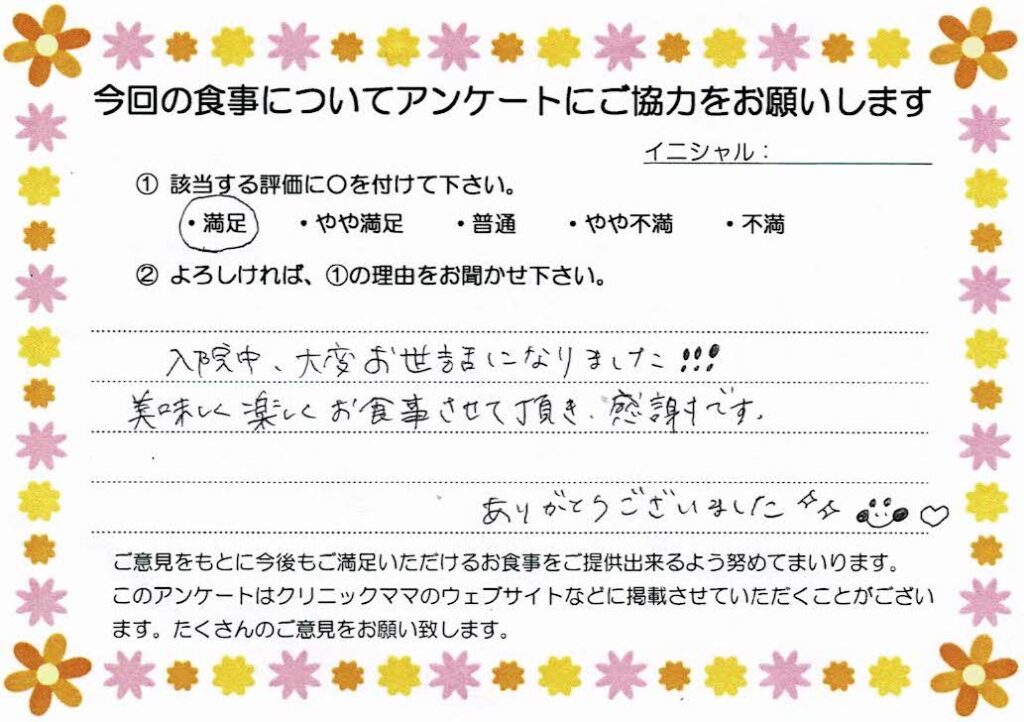 今回の食事についてアンケートにご協力をお願いします
イニシャル：
① 該当する評価に〇を付けて下さい。
・満足 ・やや満足 ・普通 ・やや不満 ・不満
② よろしければ、①の理由をお聞かせ下さい。
入院中、大変お世話になりました!!!
美味しく楽しくお食事させて頂き、感謝です。
ありがとうございました
ご意見をもとに今後もご満足いただけるお食事をご提供出来るよう努めてまいります。
このアンケートはクリニックママのウェブサイトなどに掲載させていただくことがござい
ます。たくさんのご意見をお願い致します。